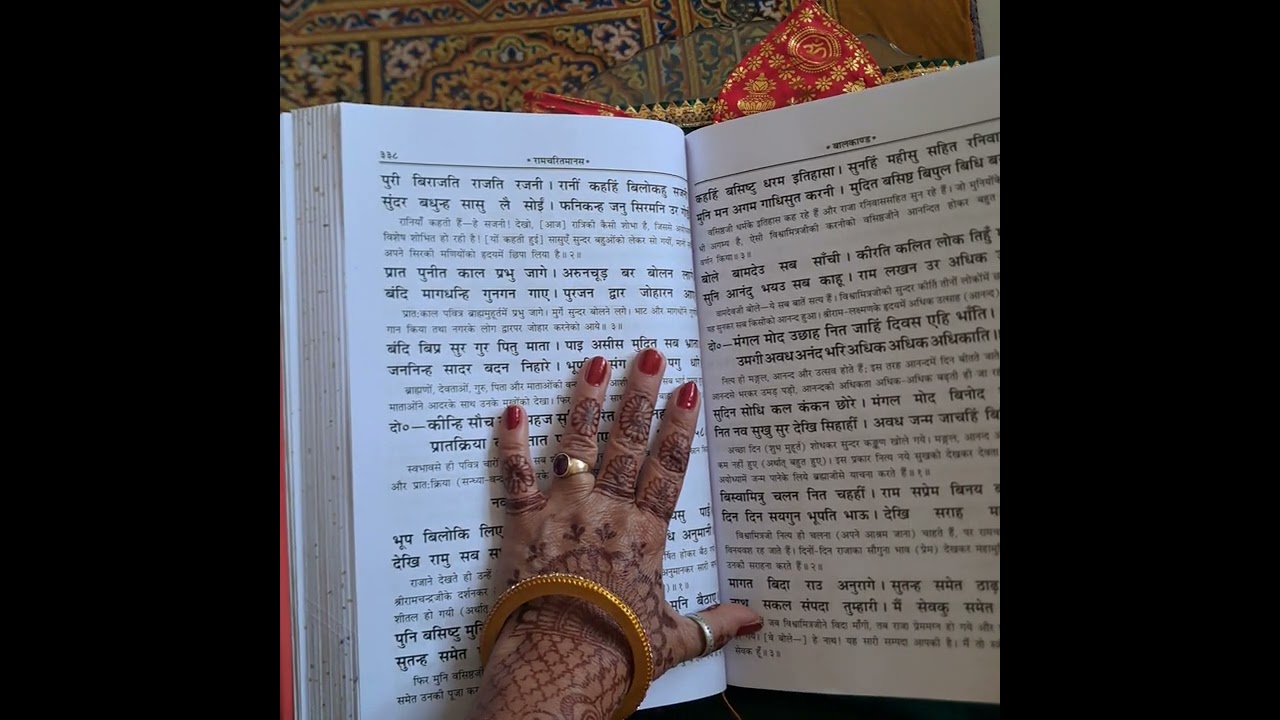 ३३८
* रामचरितमानस *
पुरी बिराजति राजति रजनी। रानीं कहहिं बिलोकहु
सुंदर बधुन्ह सासु लै सोईं। फनिकन्ह जनु सिरमनि उर
रानियाँ कहती हैं—हे सजनी! देखो, [आज] रात्रिकी कैसी शोभा है, जिससे
विशेष शोभित हो रही है! [यों कहती हुई] सासुएँ सुन्दर बहुओंको लेकर सो गयीं,
अपने सिरकी मणियोंको हृदयमें छिपा लिया है॥ २॥
प्रात पुनीत काल प्रभु जागे। अरुनचूड़ बर बोलन
बंदि मागधन्हि गुनगन गाए। पुरजन द्वार जोहारन
प्रातःकाल पवित्र ब्राह्ममुहूर्तमें प्रभु जागे। मुर्गे सुन्दर बोलने लगे। भाट और मागधोंने
गान किया तथा नगरके लोग द्वारपर जोहार करनेको आये॥ ३॥
बंदि बिप्र सुर गुर पितु माता। पाइ असीस मुदित सब
जननिन्ह सादर बदन निहारे। संग पगु
ब्राह्मणों, देवताओं, गुरु, पिता और माताओंकी
माताओंने आदरके साथ उनके मुखोंको देखा।
दो०—कीन्हि सौच
प्रातक्रिया
स्वभावसे ही पवित्र चारों
और प्रातःक्रिया
भूप बिलोकि लिए
देखि रामु सब
राजाने देखते ही उन्हें
श्रीरामचन्द्रजीके दर्शनकर
शीतल हो गयी (अर्थात्
पुनि बसिष्टु मुनि बैठाए
सुतन्ह समेत
फिर मुनि
समेत उनकी पूजा कर
* बालकाण्ड *
कहहिं बसिष्टु धरम इतिहासा। सुनहिं महीसु सहित
मुनि मन अगम गाधिसुत करनी। मुदित बसिष्ट बिपुल बिधि
वसिष्ठजी धर्मके इतिहास कह रहे हैं और राजा रनिवाससहित सुन रहे हैं। जो
भी अगम्य है, ऐसी विश्वामित्रजीकी करनीको वसिष्ठजीने आनन्दित होकर बहुत
वर्णन किया॥ ३॥
बोले बामदेउ सब साँची। कीरति कलित लोक तिहुँ
सुनि आनंदु भयउ सब काहू। राम लखन उर अधिक
वामदेवजी बोले—ये सब बातें सत्य हैं। विश्वामित्रजीकी सुन्दर कीर्ति तीनों लोकोंमें
यह सुनकर सब किसीको आनन्द हुआ। श्रीराम-लक्ष्मणके हृदयमें अधिक उत्साह (आनन्द)
दो०—मंगल मोद उछाह नित जाहिं दिवस एहि भाँति।
उमगी अवध अनंद भरि अधिक अधिक अधिकाति॥
नित्य ही मङ्गल, आनन्द और उत्सव होते हैं; इस तरह आनन्दमें दिन बीतते जाते
आनन्दसे भरकर उमड़ पड़ी, आनन्दकी अधिकता अधिक-अधिक बढ़ती ही जा
सुदिन सोधि कल कंकन छोरे। मंगल मोद बिनोद
नित नव सुखु सुर देखि सिहाहीं। अवध जन्म जाचहिं
अच्छा दिन (शुभ मुहूर्त) शोधकर सुन्दर कङ्कण खोले गये। मङ्गल, आनन्द
कम नहीं हुए (अर्थात् बहुत हुए)। इस प्रकार नित्य नये सुखको देखकर देवता
अयोध्यामें जन्म पानेके लिये ब्रह्माजीसे याचना करते हैं॥ १॥
बिस्वामित्रु चलन नित चहहीं। राम सप्रेम बिनय
दिन दिन सयगुन भूपति भाऊ। देखि सराह
विश्वामित्रजी नित्य ही चलना (अपने आश्रम जाना) चाहते हैं, पर
विनयवश रह जाते हैं। दिनों-दिन राजाका सौगुना भाव (प्रेम) देखकर
उनकी सराहना करते हैं॥ २॥
मागत बिदा राउ अनुरागे। सुतन्ह समेत
सकल संपदा तुम्हारी। मैं सेवकु समेत
जब विश्वामित्रजीने विदा माँगी, तब राजा प्रेममग्न हो गये और
[वे बोले—] हे नाथ! यह सारी सम्पदा आपकी है। मैं तो
सेवक हूँ॥ ३॥